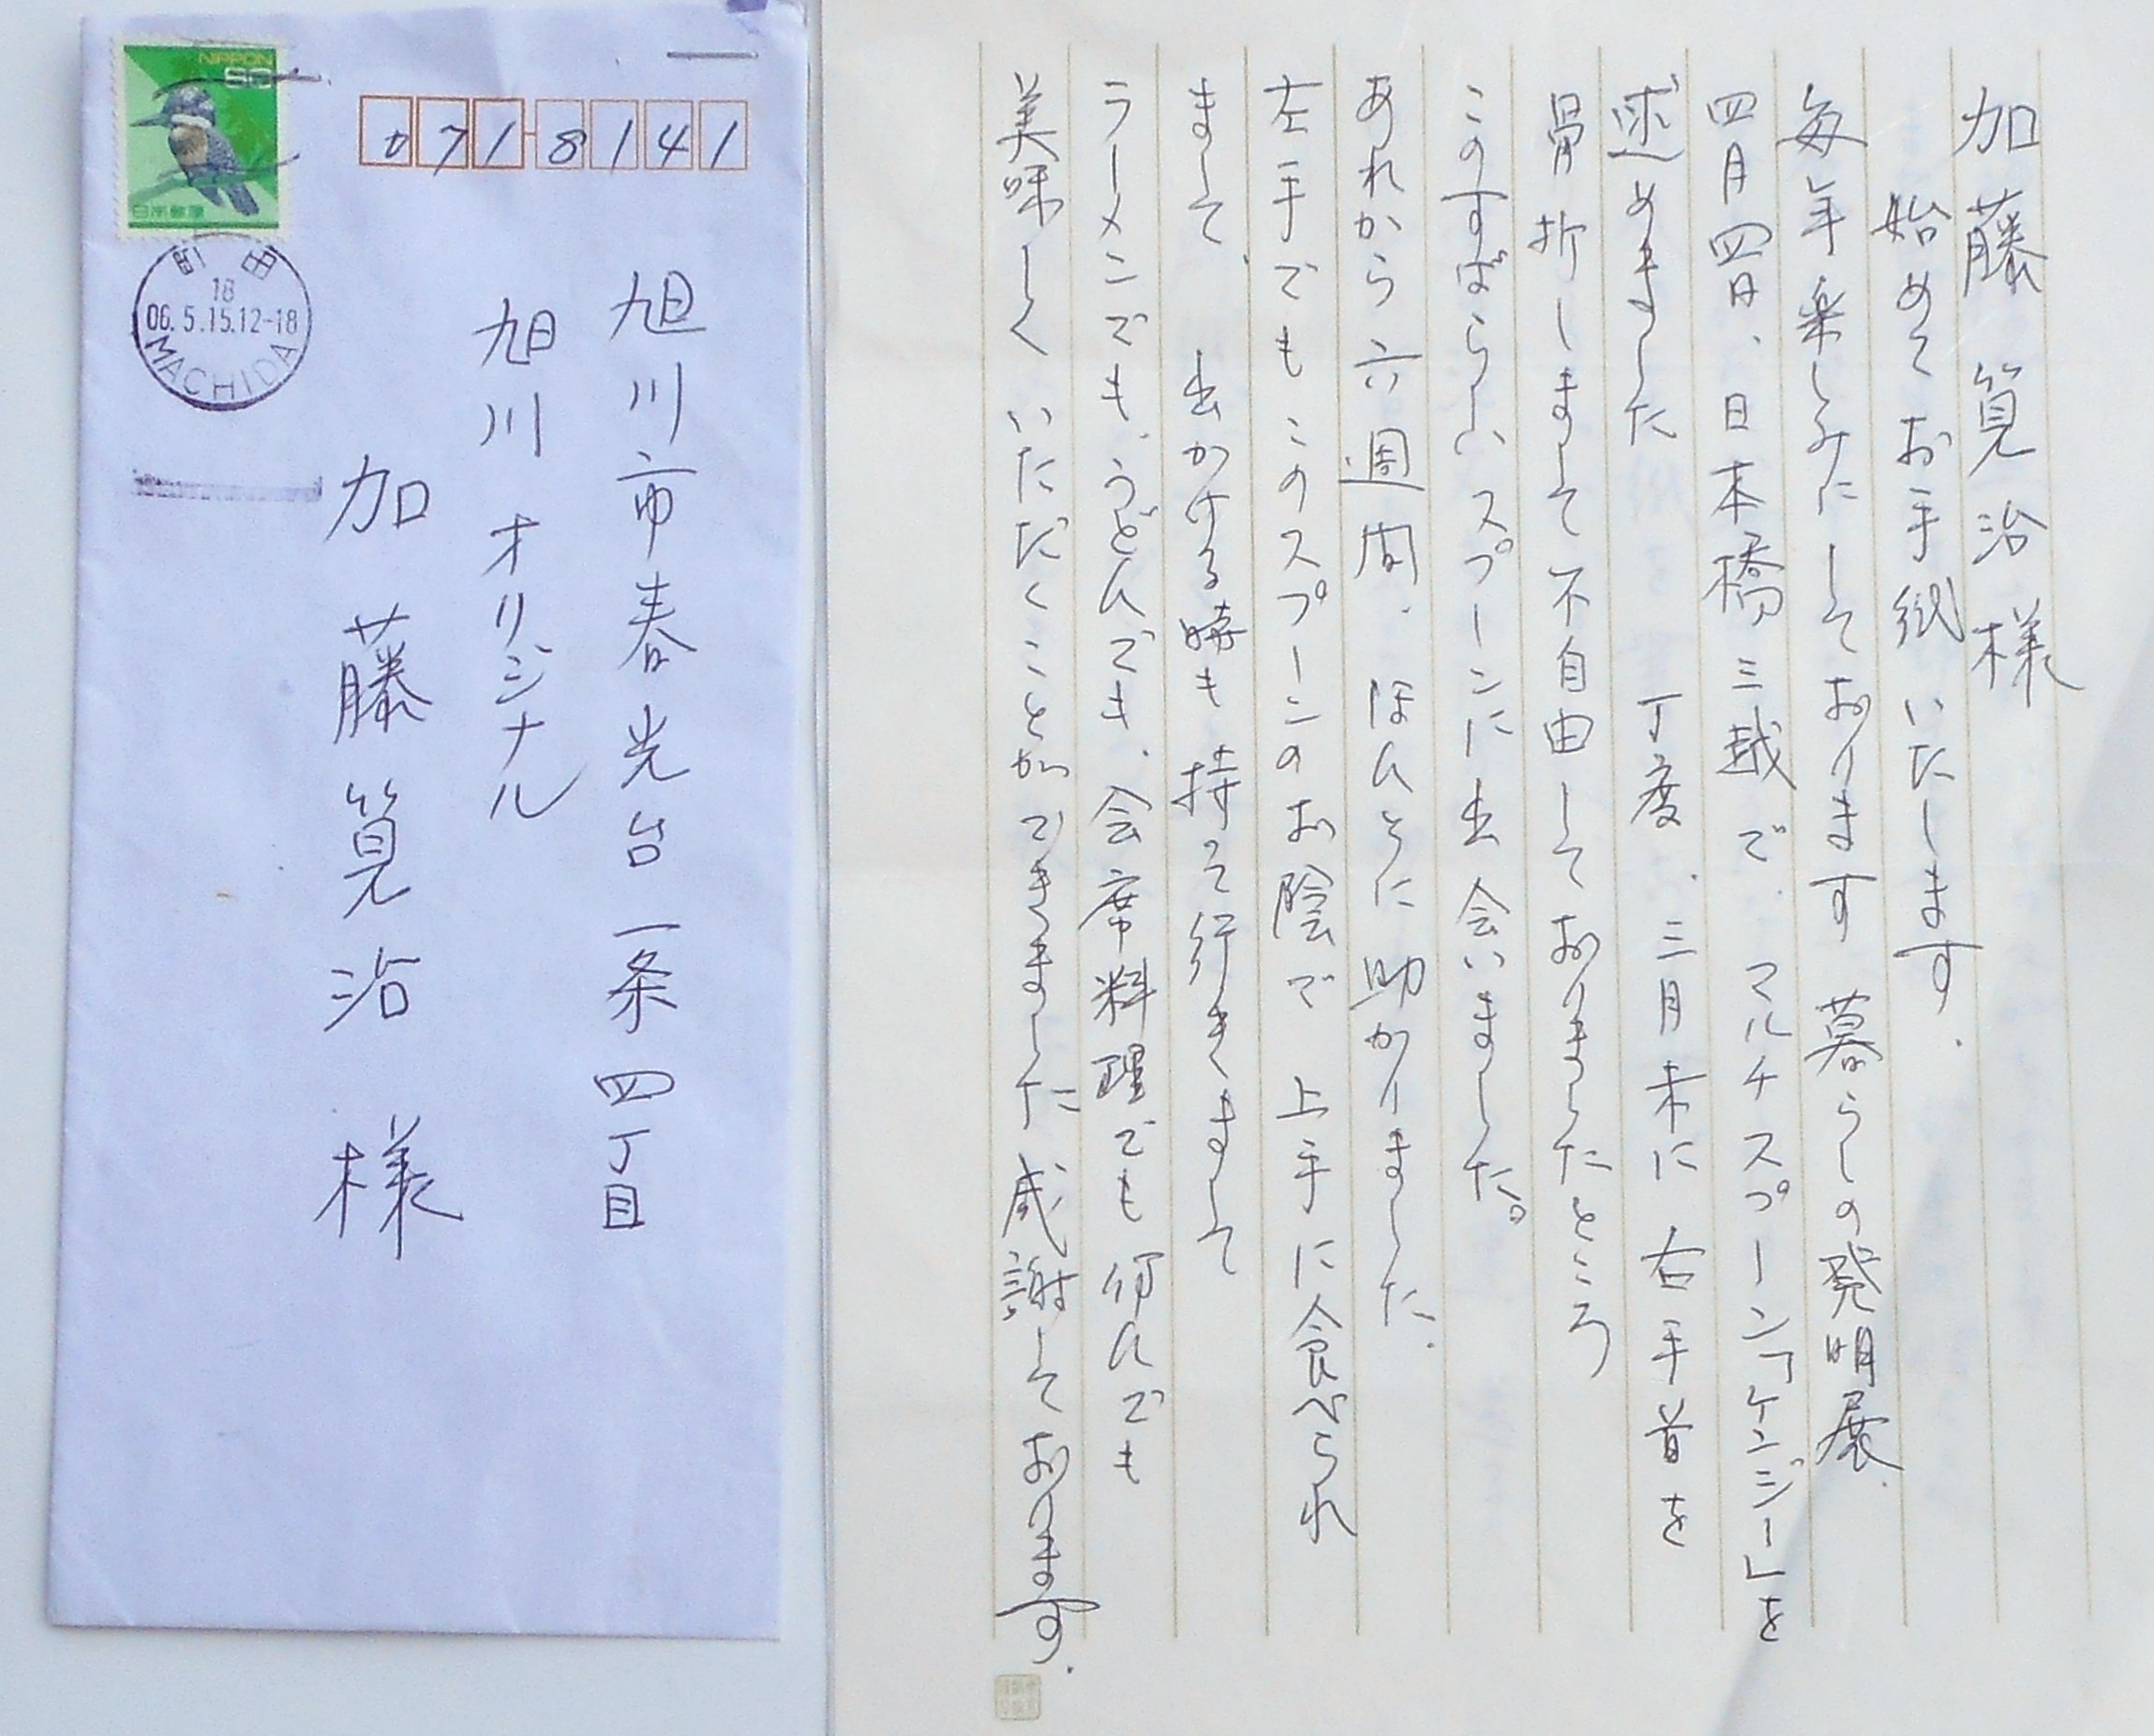 NIPPON
80
日本郵便
町田
18
06.5.15.12-18
MACHIDA
071-8141
旭川市春光台一条四丁目
旭川オリジナル
加藤筧治様
加藤筧治様
始めてお手紙いたします.
毎年楽しみにしております暮らしの発明展.
四月四日、日本橋三越で、マルチスプーン「ケンジー」を
求めました 丁度、三月末に右手首を
骨折しまして不自由しておりましたところ
このすばらしいスプーンに出会いました。
あれから六週間、ほんとに助かりました.
左手でもこのスプーンのお陰で 上手に食べられ
まして、 出かける時も持って行きまして
ラーメンでも、うどんでも、会席料理でも何んでも
美味しくいただくことができました感謝しております.